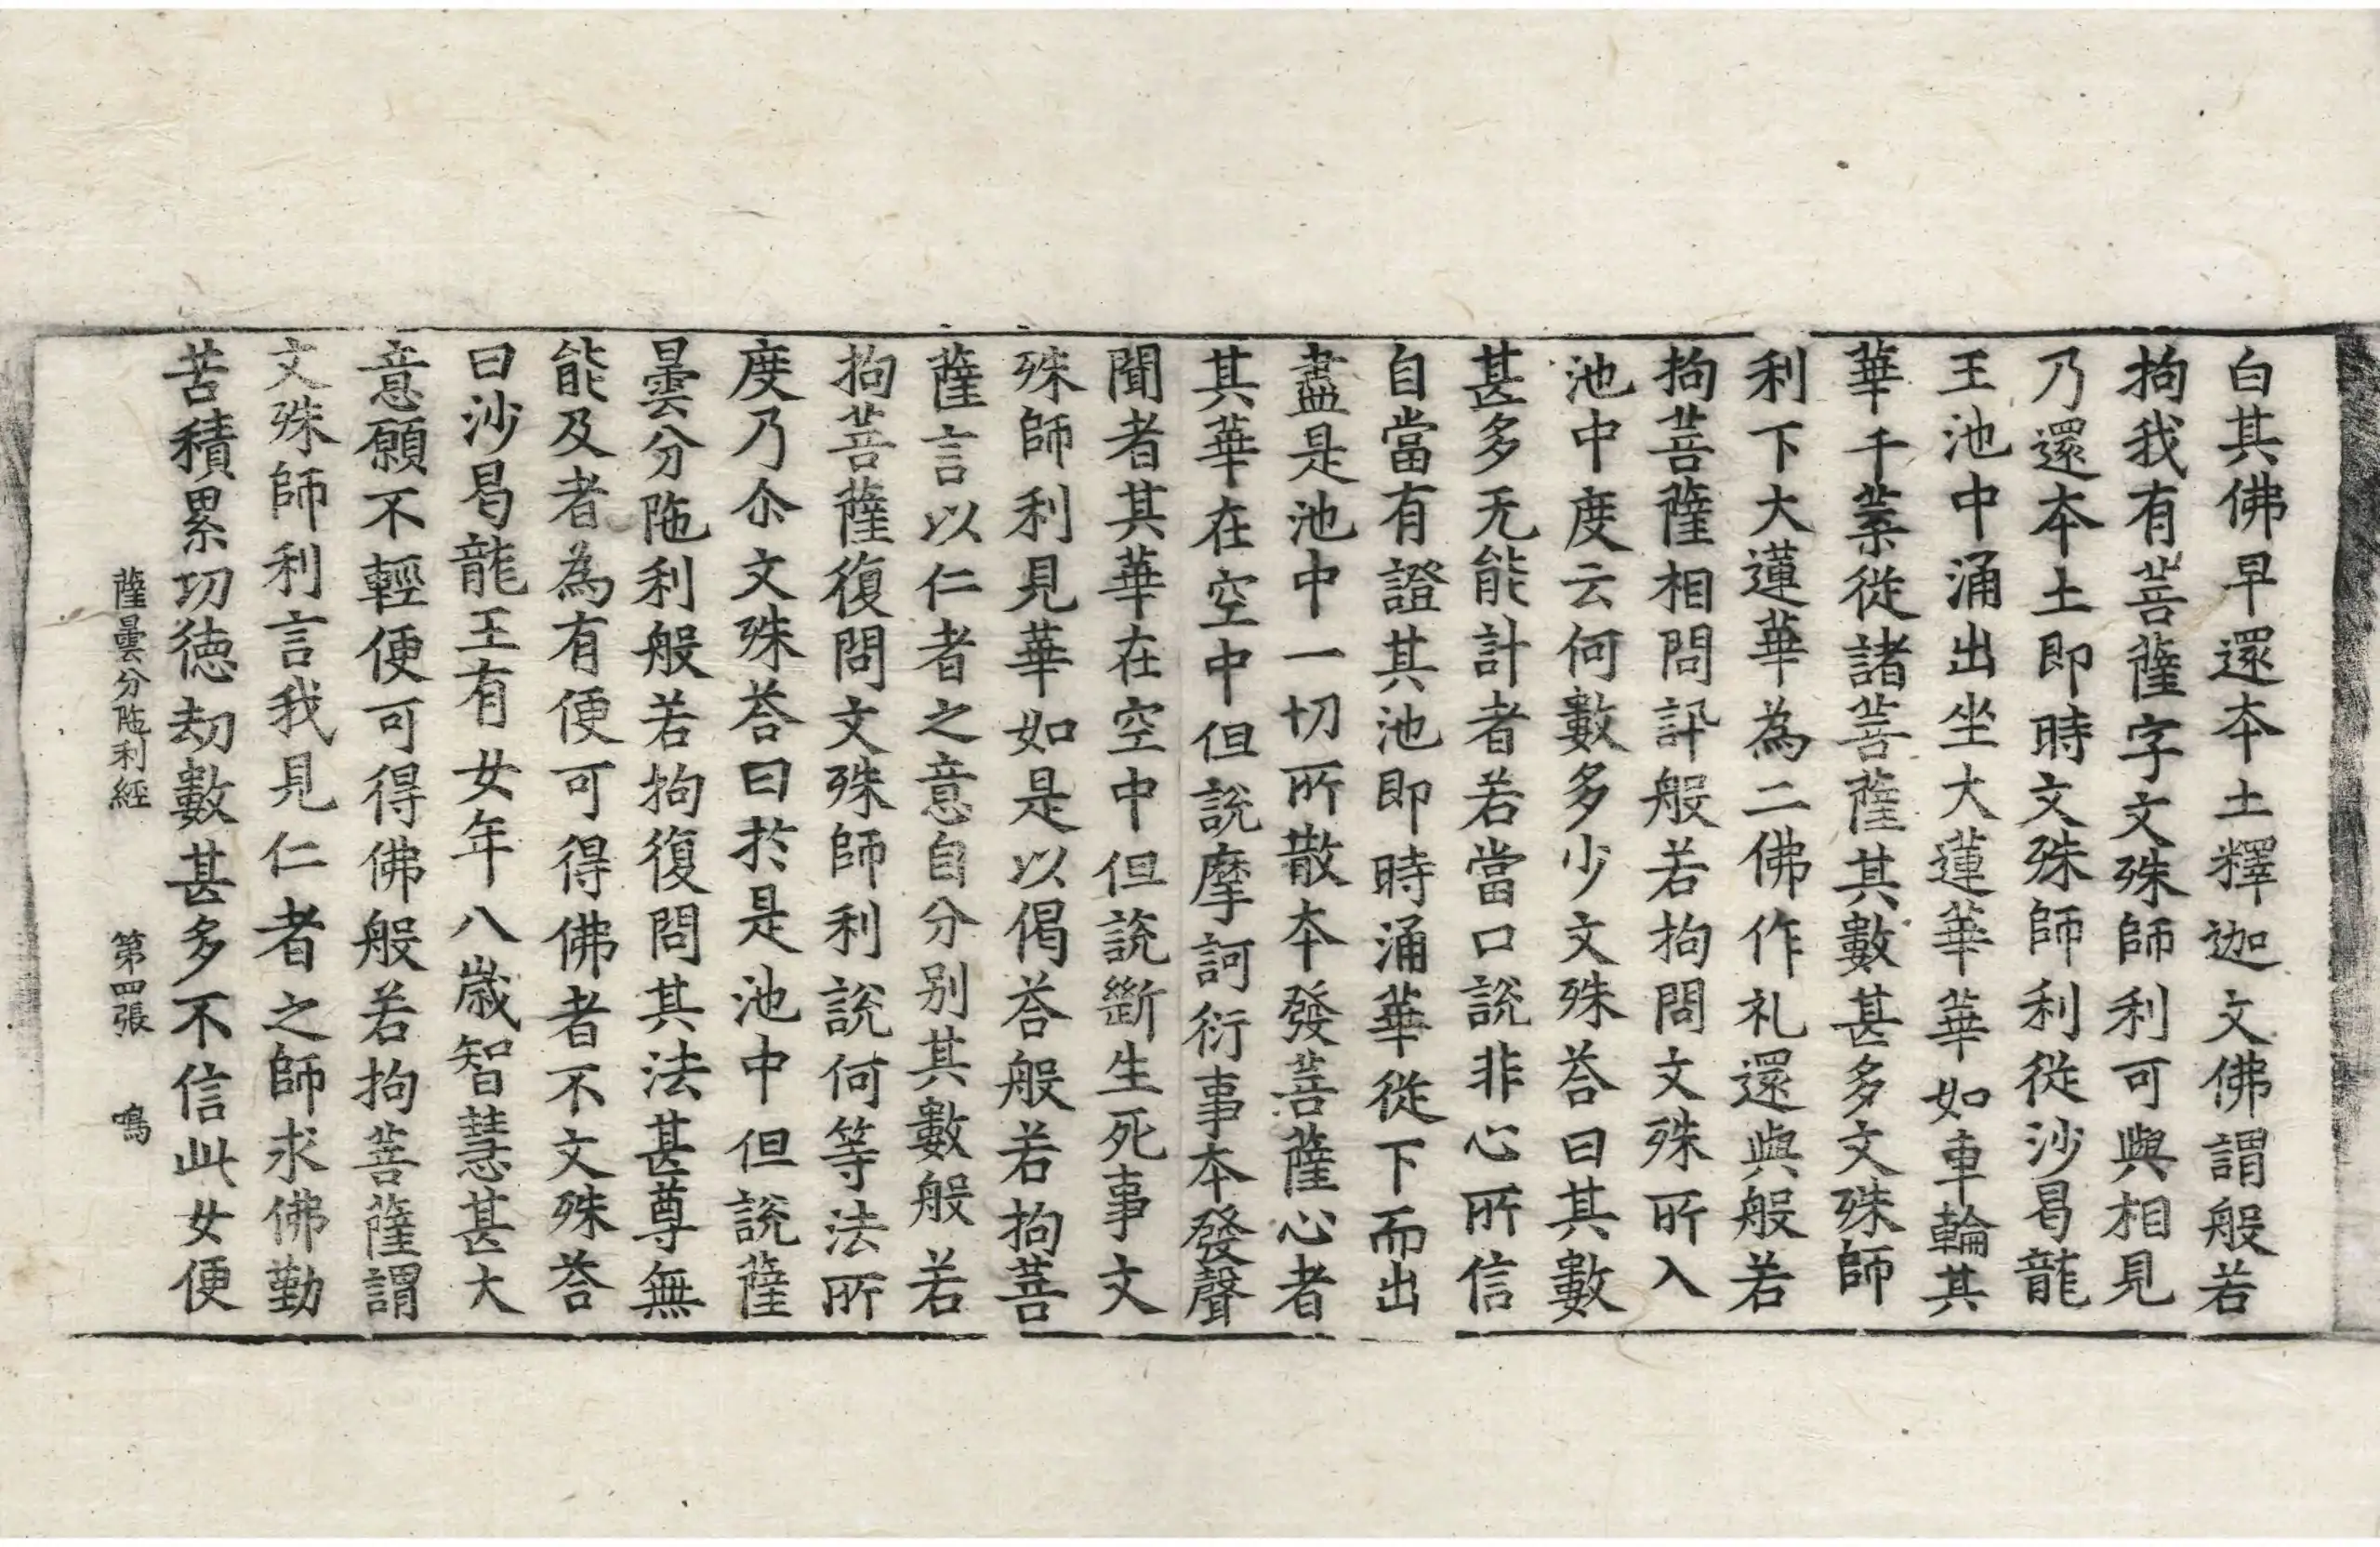 白其佛早還本土釋迦文佛謂般若
拘我有菩薩字文殊師利可與相見
乃還本土即時文殊師利從沙曷龍
王池中涌出坐大蓮華華如車輪其
華千葉從諸菩薩其數甚多文殊師
利下大蓮華為二佛作礼還與般若
拘菩薩相問訊般若拘問文殊所入
池中度云何數多少文殊荅曰其數
甚多无能計者若當口說非心所信
自當有證其池即時涌華從下而出
盡是池中一切所散本發菩薩心者
其華在空中但說摩訶衍事本發聲
聞者其華在空中但說斷生死事文
殊師利見華如是以偈荅般若拘菩
薩言以仁者之意自分別其數般若
拘菩薩復問文殊師利說何等法所
度乃尒文殊荅曰於是池中但說薩
曇分陁利般若拘復問其法甚尊無
能及者為有便可得佛者不文殊荅
曰沙曷龍王有女年八歲智慧甚大
意願不輕便可得佛般若拘菩薩謂
文殊師利言我見仁者之師求佛勤
苦積累功德劫數甚多不信此女便
薩曇分陁利經 第四張 鳴